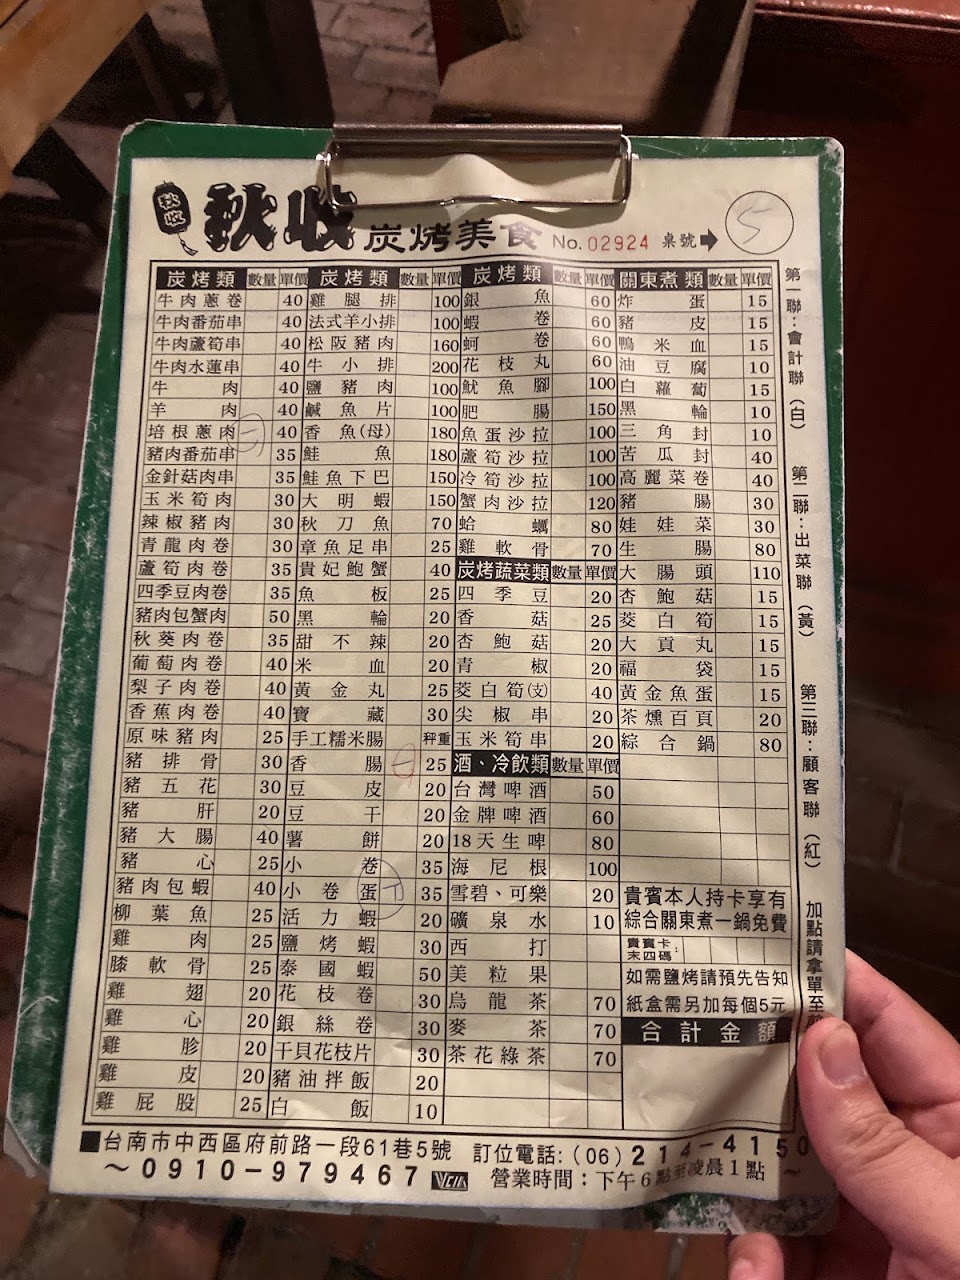 秋收
秋收 炭烤美食 No. 02924 桌號➡ 5
炭烤類 數量 單價
牛肉蔥卷 40
牛肉番茄串 40
牛肉蘆筍串 40
牛肉水蓮串 40
牛肉 40
羊肉 40
培根蔥肉 二 40
豬肉番茄串 35
金針菇肉串 35
玉米筍肉 30
辣椒豬肉 30
青龍肉卷 30
蘆筍肉卷 35
四季豆肉卷 35
豬肉包蟹肉 50
秋葵肉卷 35
葡萄肉卷 40
梨子肉卷 40
香蕉肉卷 40
原味豬肉 25
豬排骨 30
豬五花 30
豬肝 20
豬大腸 40
豬心 25
豬肉包蝦 40
柳葉魚 25
雞肉 25
膝軟骨 25
雞翅 20
雞心 20
雞胗 20
雞皮 20
雞屁股 25
炭烤類 數量 單價
雞腿排 100
法式羊小排 100
松阪豬肉 160
牛小排 200
鹽豬肉 100
鹹魚片 100
香魚(母) 180
鮭魚 180
鮭魚下巴 150
大明蝦 150
秋刀魚 70
章魚足串 25
貴妃鮑蟹 40
魚板 25
黑輪 20
甜不辣 20
米血 20
黃金丸 25
寶藏 30
手工糯米腸 秤重
香腸 一 25
豆皮 20
豆干 20
薯餅 20
小卷 35
小卷蛋 丁 35
活力蝦 20
鹽烤蝦 30
泰國蝦 50
花枝卷 30
銀絲卷 30
干貝花枝片 30
豬油拌飯 20
白飯 10
炭烤類 數量 單價
銀魚 60
蝦卷 60
蚵卷 60
花枝丸 60
魷魚腳 100
肥腸 150
魚蛋沙拉 100
蘆筍沙拉 100
冷筍沙拉 100
蟹肉沙拉 120
蛤蠣 80
雞軟骨 70
炭烤蔬菜類 數量 單價
四季豆 20
香菇 25
杏鮑菇 20
青椒 20
茭白筍(支) 40
尖椒串 20
玉米筍串 20
酒、冷飲類 數量 單價
台灣啤酒 50
金牌啤酒 60
18天生啤 80
海尼根 100
雪碧、可樂 20
礦泉水 10
西打
美粒果
烏龍茶 70
麥茶 70
茶花綠茶 70
關東煮類 數量 單價
炸蛋 15
豬皮 15
鴨米血 15
油豆腐 10
白蘿蔔 15
黑輪 10
三角封 10
苦瓜封 40
高麗菜卷 40
豬腸 30
娃娃菜 30
生腸 80
大腸頭 110
杏鮑菇 15
茭白筍 15
大貢丸 15
福袋 15
黃金魚蛋 15
茶燻百頁 20
綜合鍋 80
貴賓本人持卡享有
綜合關東煮一鍋免費
貴賓卡
末四碼：
如需鹽烤請預先告知
紙盒需另加每個5元
合計金額
第一聯：會計聯（白） 第二聯：出菜聯（黃） 第三聯：顧客聯（紅） 加點請拿單至
■台南市中西區府前路一段61巷5號 訂位電話：(06)214-4150
～0910-979467 營業時間：下午6點至凌晨1點～